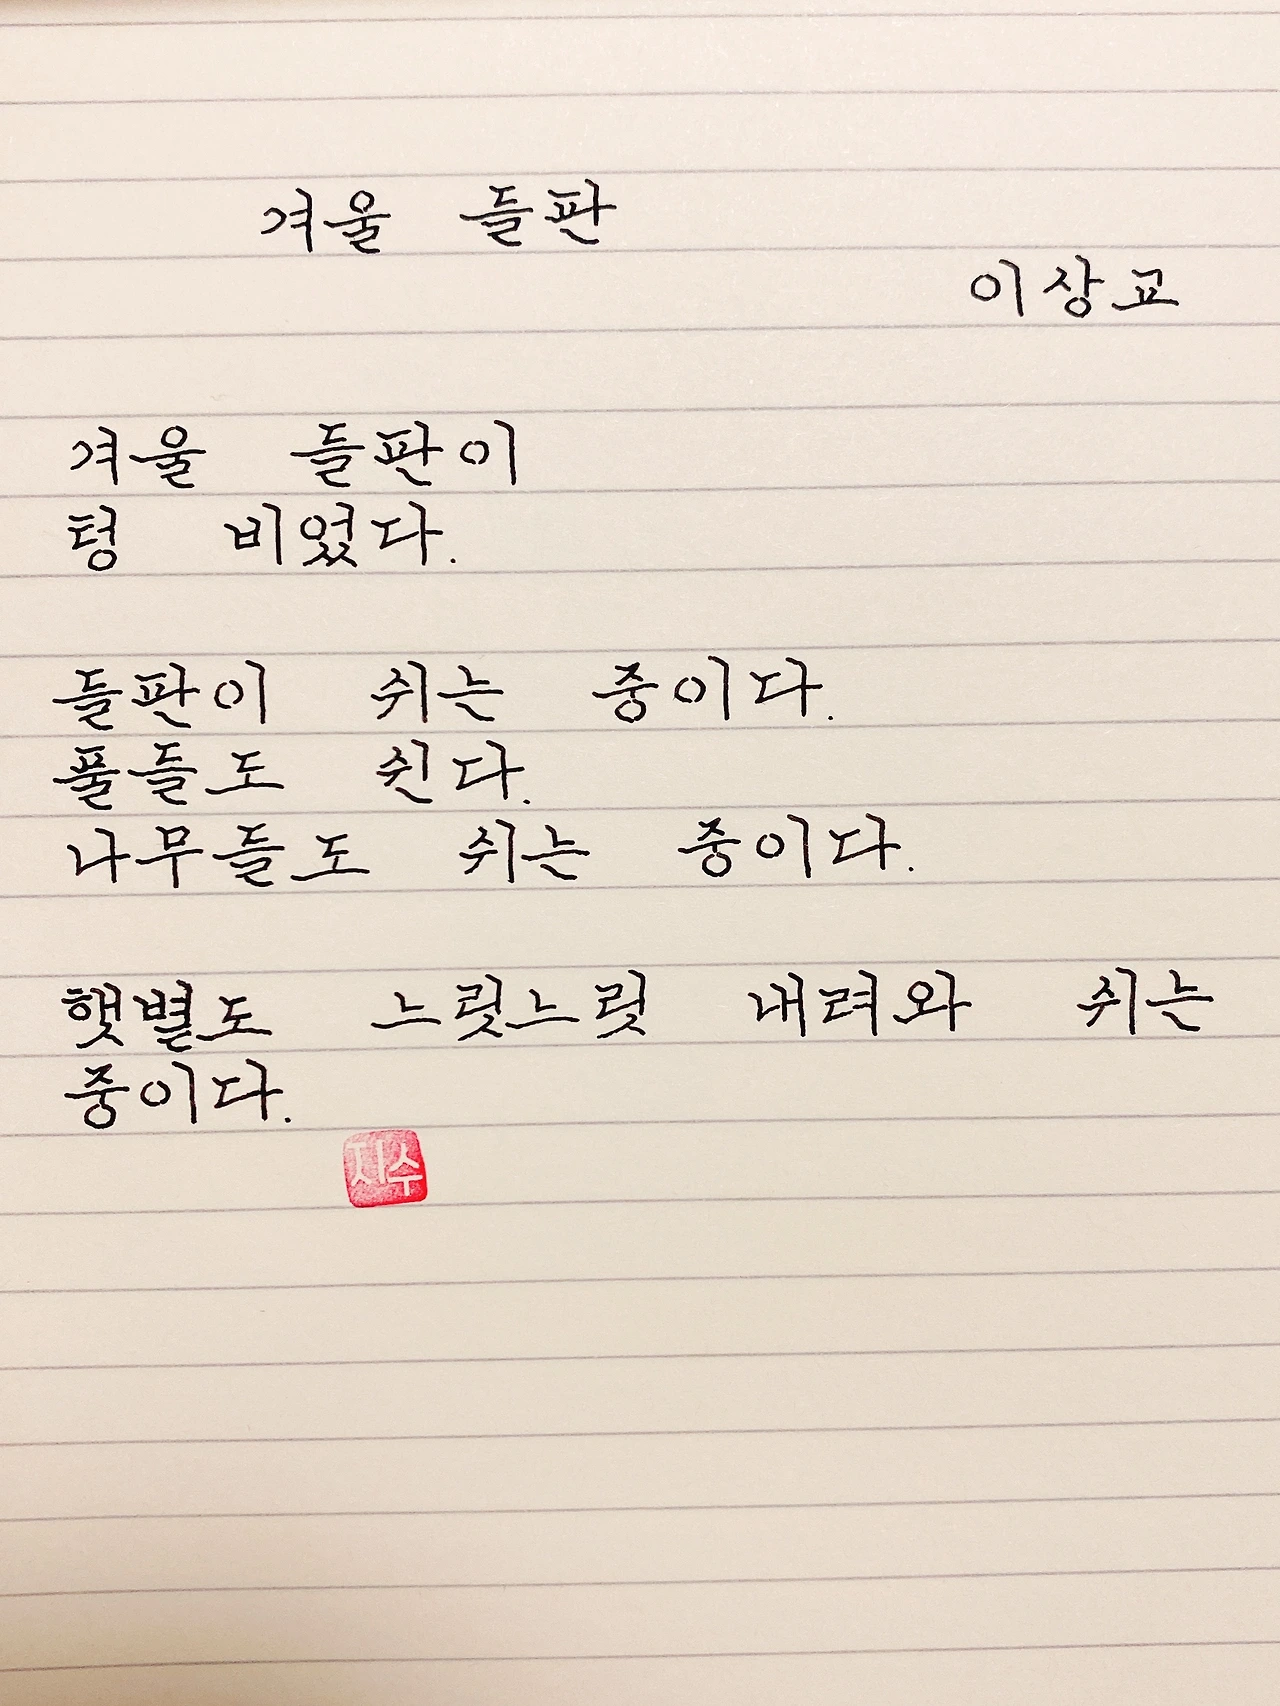 겨울 들판
이상교
겨울 들판이
텅 비었다.
들판이 쉬는 중이다.
풀들도 쉰다.
나무들도 쉬는 중이다.
햇볕도 느릿느릿 내려와 쉬는
중이다.
지수